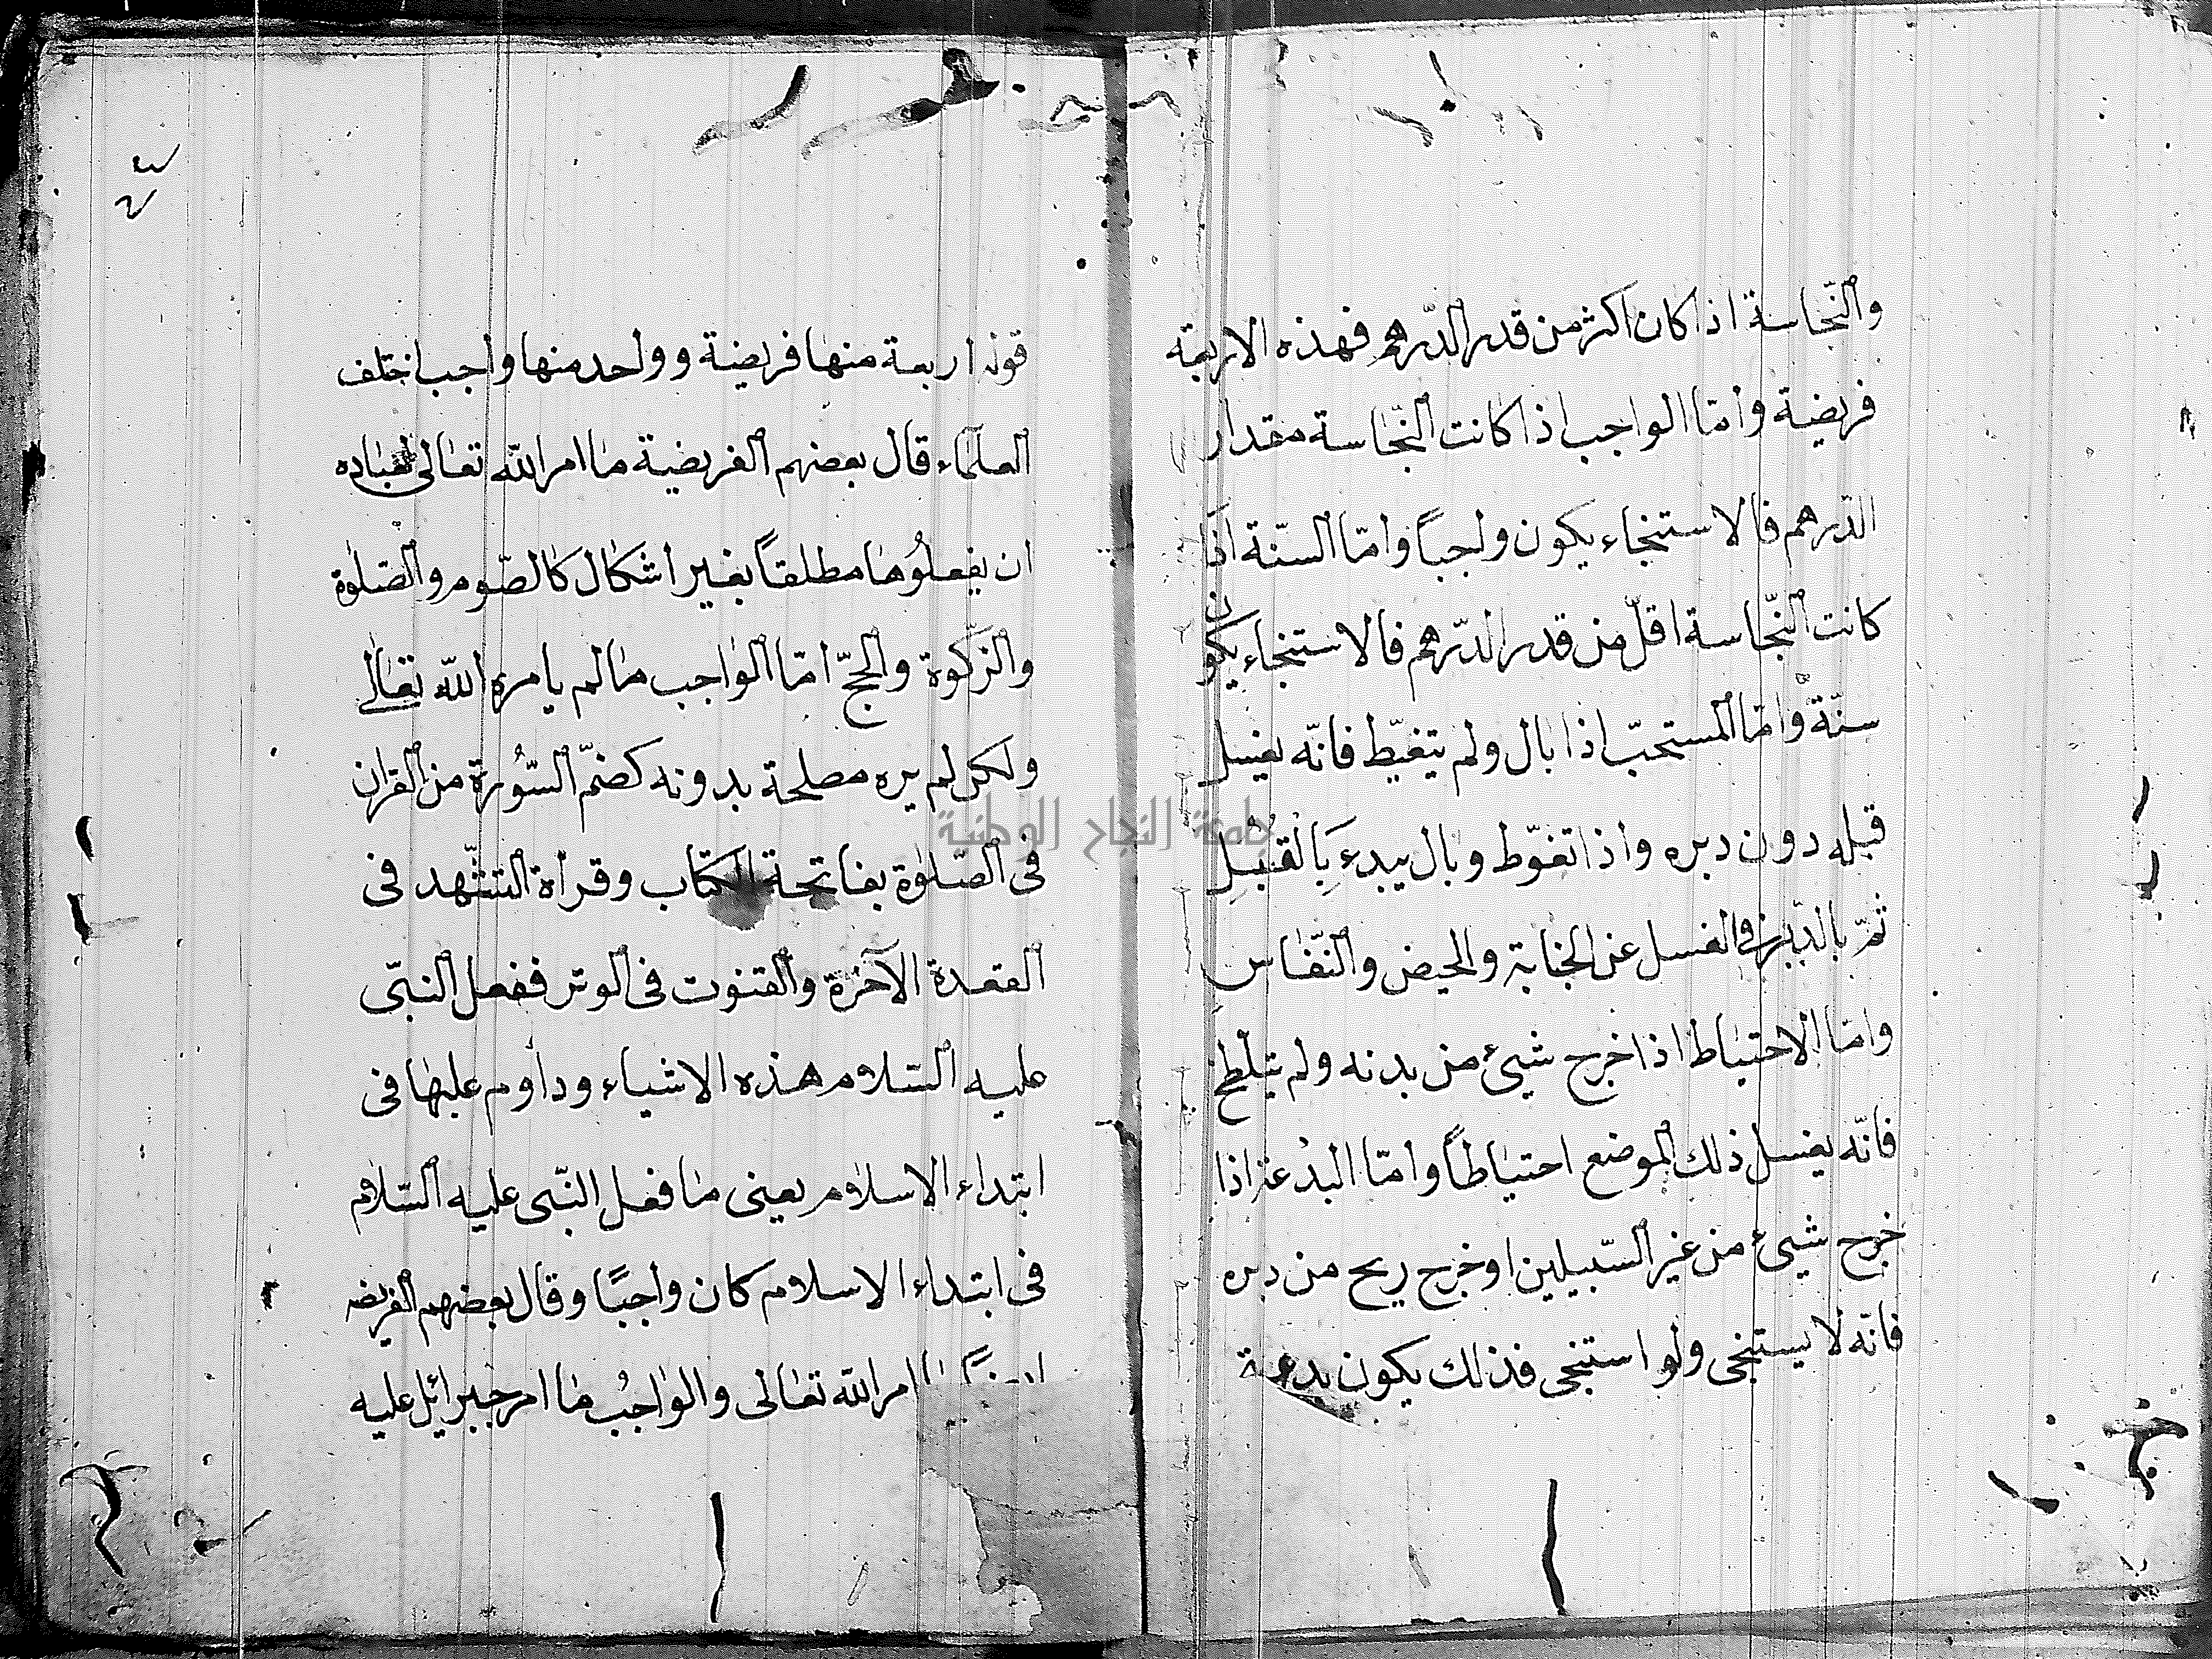 والنّجاسة اذا كان اكثر من قدر الدّرهم فهذه الاربعة
فريضة وامّا الواجب اذا كانت النّجاسة مقدار
الدّرهم فالاستنجاء يكون واجباً وامّا السّنة اذا
كانت النّجاسة اقلّ من قدر الدّرهم فالاستنجاء يكون
سنّة وامّا المستحبّ اذا بال ولم يتغيّط فانّه يغسل
قبله دون دبره واذا تغوّط وبال يبدء بالقبل
ثمّ بالدّبر في الغسل عن الجنابة والحيض والنّفاس
وامّا الاحتياط اذا خرج شيئ من بدنه ولم يتلطخ
فانّه يغسل ذلك الموضع احتياطاً وامّا البدعة اذا
خرج شيئ من غير السّبيلين او خرج ريح من دبره
فانّه لا يستنجى ولو استنجى فذلك يكون بدعة
اربعة منها فريضة وواحد منها واجب اختلف
العلماء قال بعضهم الفريضة ما امر اللّه تعالى لعباده
ان يفعلُوها مطلقاً بغير اشكال كالصّوم والصّلوة
والزّكوة والحجّ امّا الواجب ما لم يامره اللّه تعالى
ولكن لم يره مصلحة بدونه كضمّ السّورة من القران
فى الصّلوة بفاتحة الكتاب وقرأة التشّهد فى
القعدة الآخرة والقنوت فى الوتر ففعل النبّى
عليه السّلام هذه الاشياء وداوم عليها فى
ابتداء الاسلام يعنى ما فعل النبّى عليه السّلام
فى ابتداء الاسلام كان واجبًا وقال بعضهم الفريضه
امر اللّه تعالى والواجبُ ما امر جبرائل عليه
جامعة النجاح الوطنية